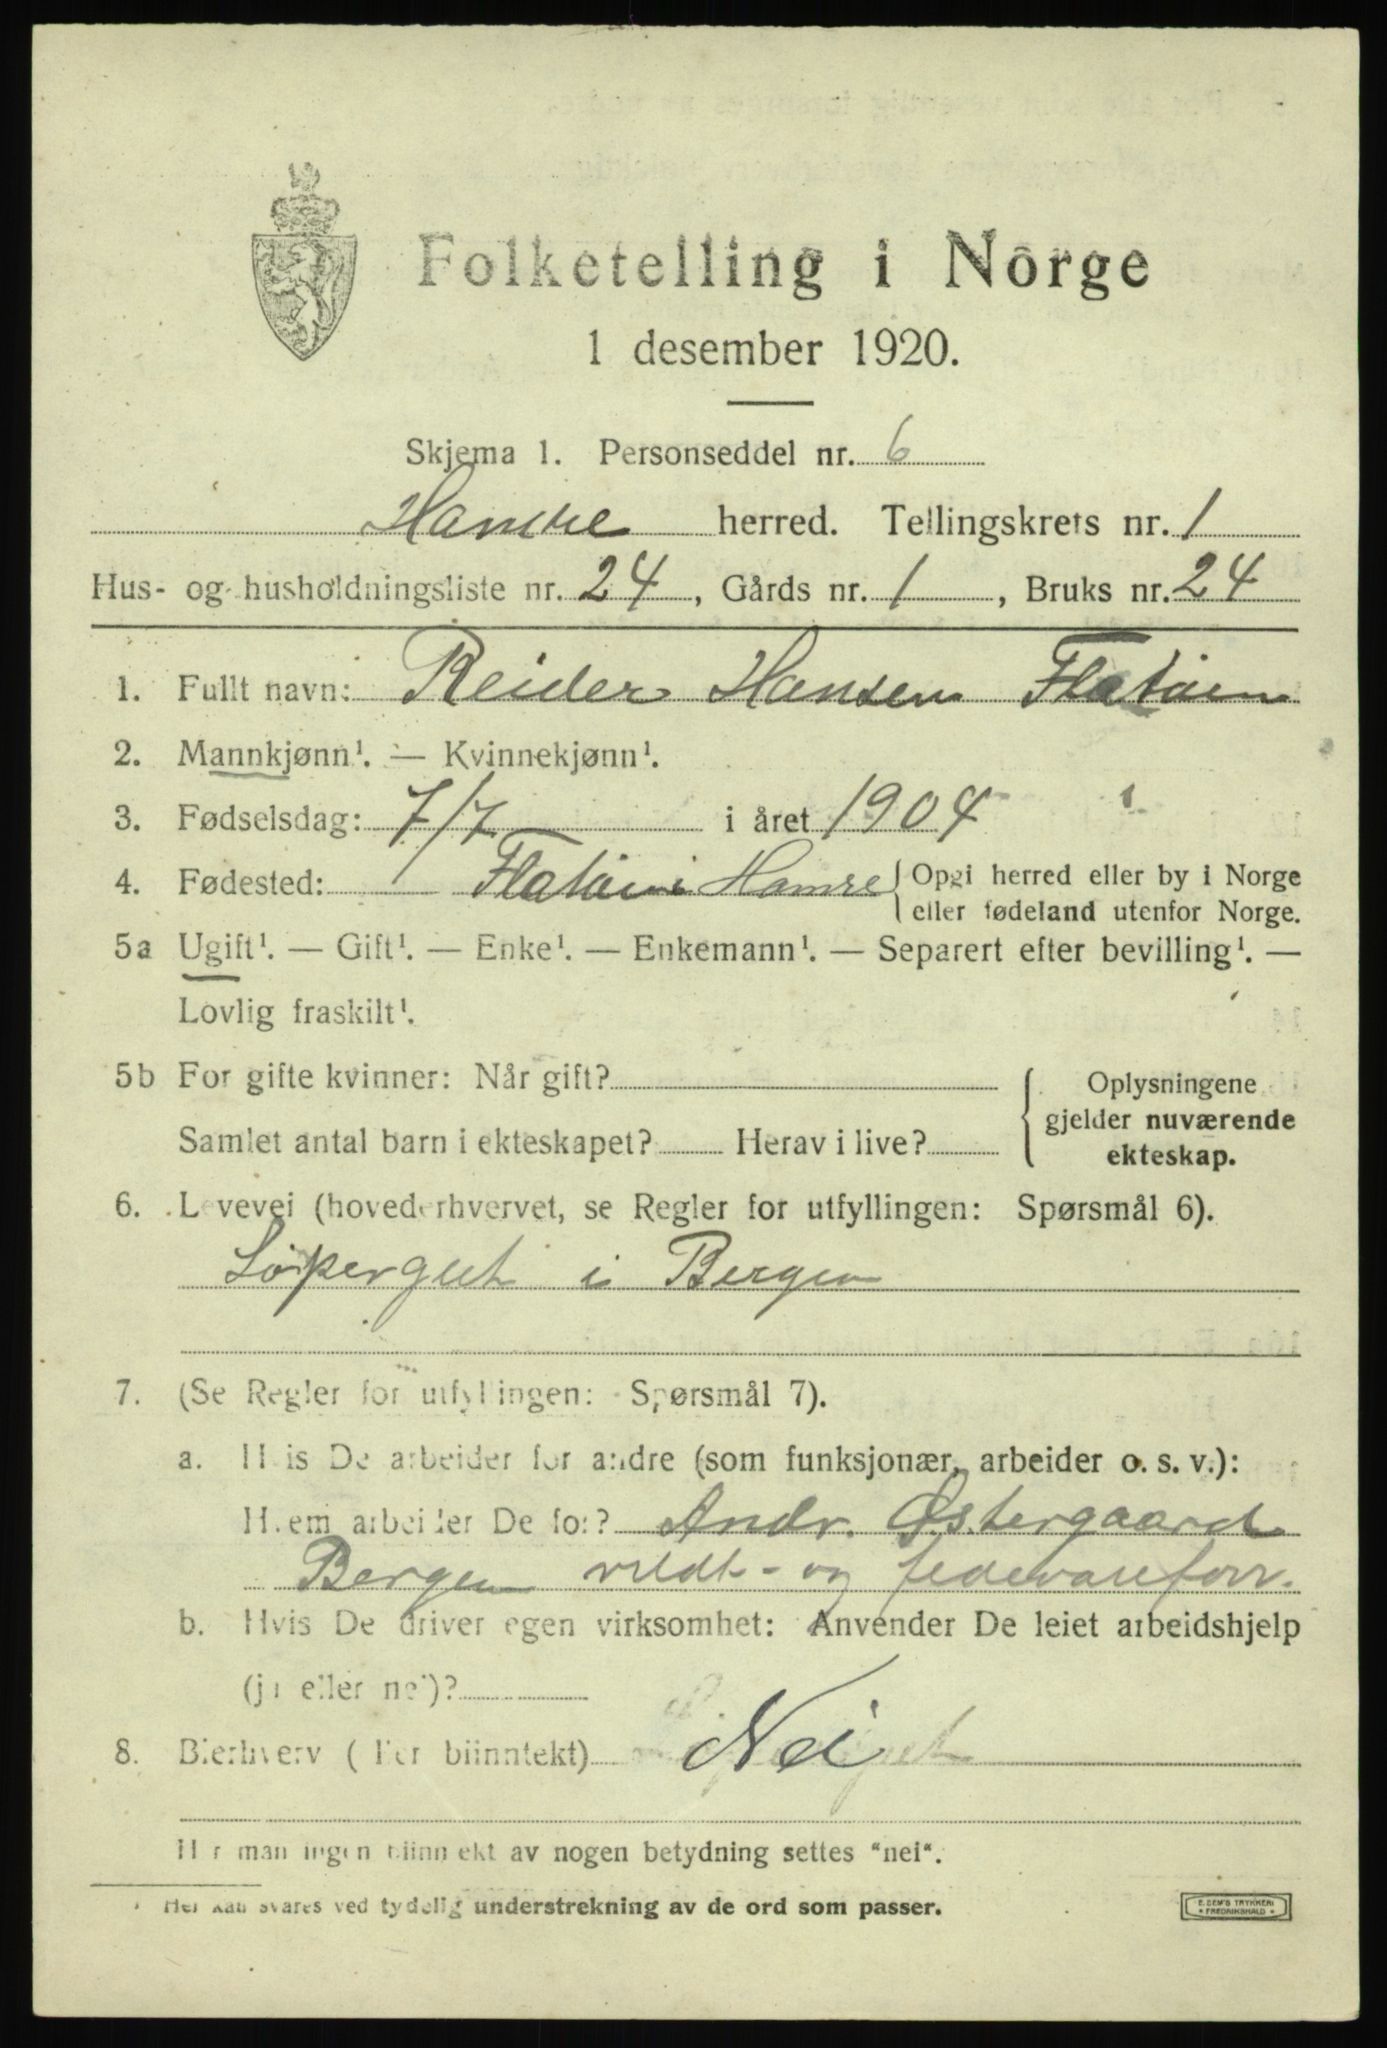 Folketelling i Norge
1 desember 1920.
Skjema 1. Personseddel nr. 6
Hamre herred. Tellingskrets nr. 1
Hus- og husholdningsliste nr. 24, Gårds nr. 1, Bruks nr. 24
1. Fullt navn: Reider Hansen Flatöien
2. Mannkjønn¹. — Kvinnekjønn¹.
3. Fødselsdag: 7/7 i året 1904
4. Fødested: Flatöen i Hamre { Opgi herred eller by i Norge
eller fødeland utenfor Norge.
5a Ugift¹. — Gift¹. — Enke¹. — Enkemann¹. — Separert efter bevilling¹. —
Lovlig fraskilt¹.
5b For gifte kvinner: Når gift?
Samlet antal barn i ekteskapet? Herav i live?
{ Oplysningene
gjelder nuværende
ekteskap.
6. Levevei (hovederhvervet, se Regler for utfyllingen: Spørsmål 6).
Löpergut i Bergen
7. (Se Regler for utfyllingen: Spørsmål 7).
a. Hvis De arbeider for andre (som funksjonær, arbeider o. s. v.):
Hvem arbeider De for? Andr. Østergaard
Bergen vildt- og federareforr.
b. Hvis De driver egen virksomhet: Anvender De leiet arbeidshjelp
(ja eller nei)?
8. Bierhverv (eller biinntekt) Nei
Har man ingen biinntekt av nogen betydning settes "nei".
¹ Her kan svares ved tydelig understrekning av de ord som passer.
E. SEM'S TRYKKERI
* FREDRIKSHALD *